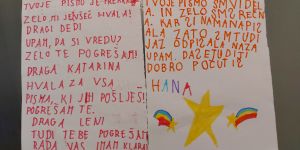 TVOJE PISMO JE PREKRA
ZELO MI JE VŠEČ HVALA!
DRAGI DEDI
UPAM, DA SI VREDU?
ZELO TE POGREŠAM!
DRAGA KATARINA
HVALA ZA VSA
PISMA, KI JIH POŠLJEŠ!
POGREŠAM TE.
DRAGA LENI
TUDI TE BE POGREŠAM
RADA VAS IMAM KLARA
TVOJE PISMO SM VIDEL
A. IN ZELO SM SREČN
KAR SI NAM NAPIS
ALA ZATO, SM TUDI
UAZ ODPISALA NAZA
UPAM, DA ŽE TUDI TI
DOBRO POČUTIŠ
HANA